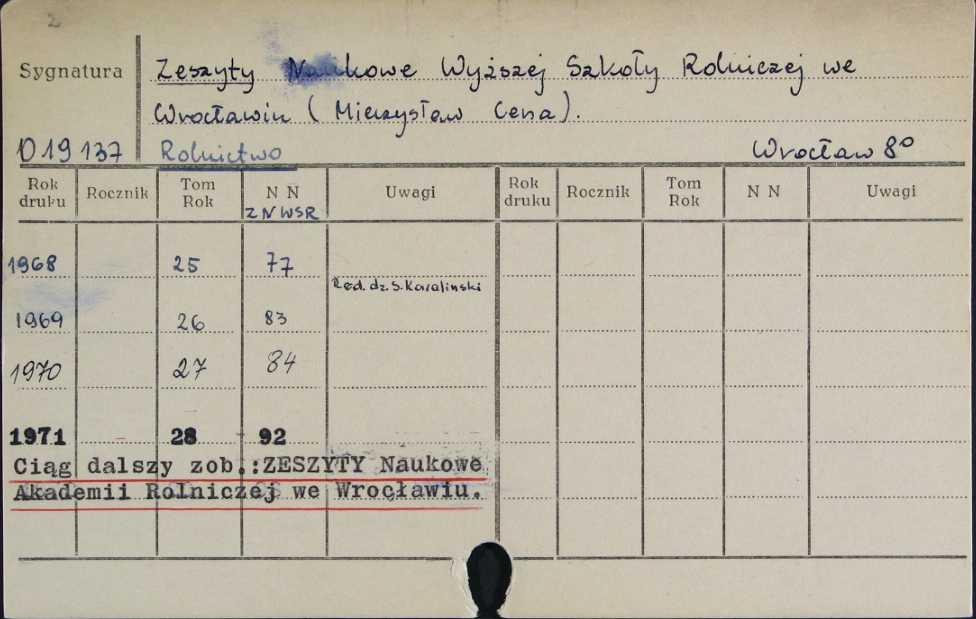 2
Sygnatura
Zeszyty Naukowe Wyższej Szkoły Rolniczej we
Wrocławiu (Mieczysław Cena).
019137 Rolnictwo Wrocław 8º
Rok druku Rocznik Tom Rok N N Uwagi Rok druku Rocznik Tom Rok N N Uwagi
ZNWSR
1968 25 77
Red. dz. S. Karaliński
1969 26 83
1970 27 84
1971 28 92
Ciąg dalszy zob.:ZESZYTY Naukowe
Akademii Rolniczej we Wrocławiu.